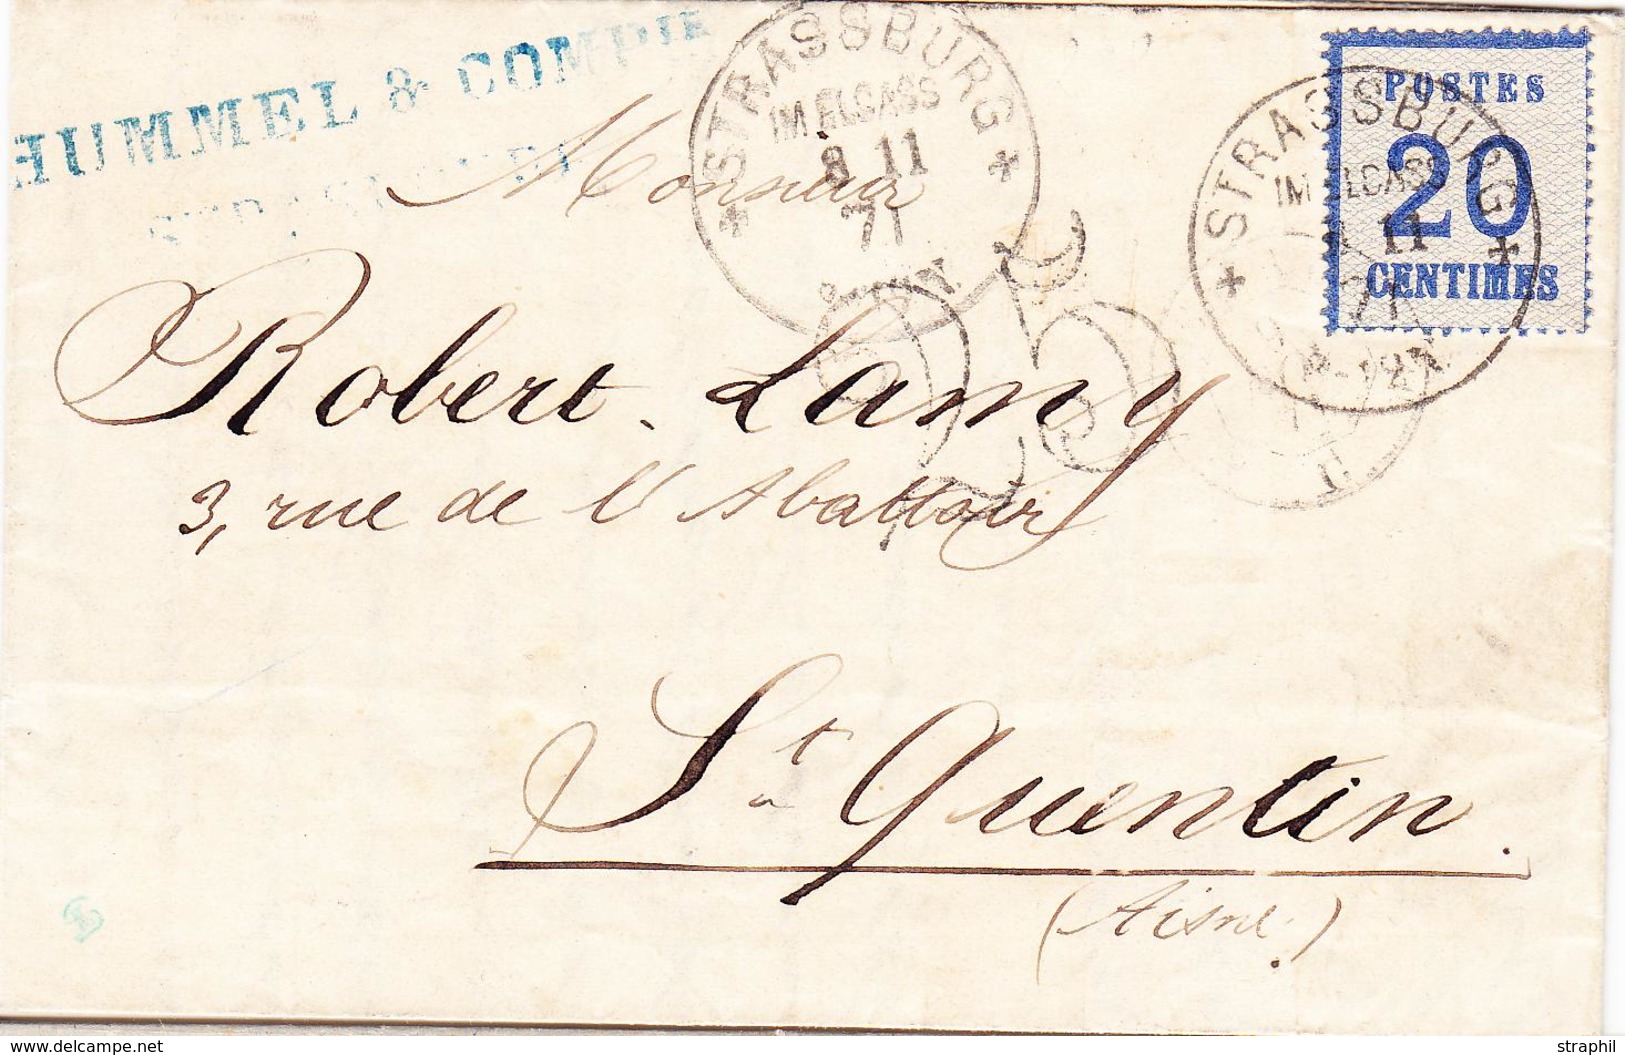 HUMMEL & COMPIE
STRASSBURG
IM ELSASS
8 11
71
POSTES
20
CENTIMES
STRASSBURG
IM ELSASS
11
71
Monsieur
25
Robert Lamy
3, rue de l'Abattoir
St. Quentin.
(Aisne.)
www.delcampe.net
straphil